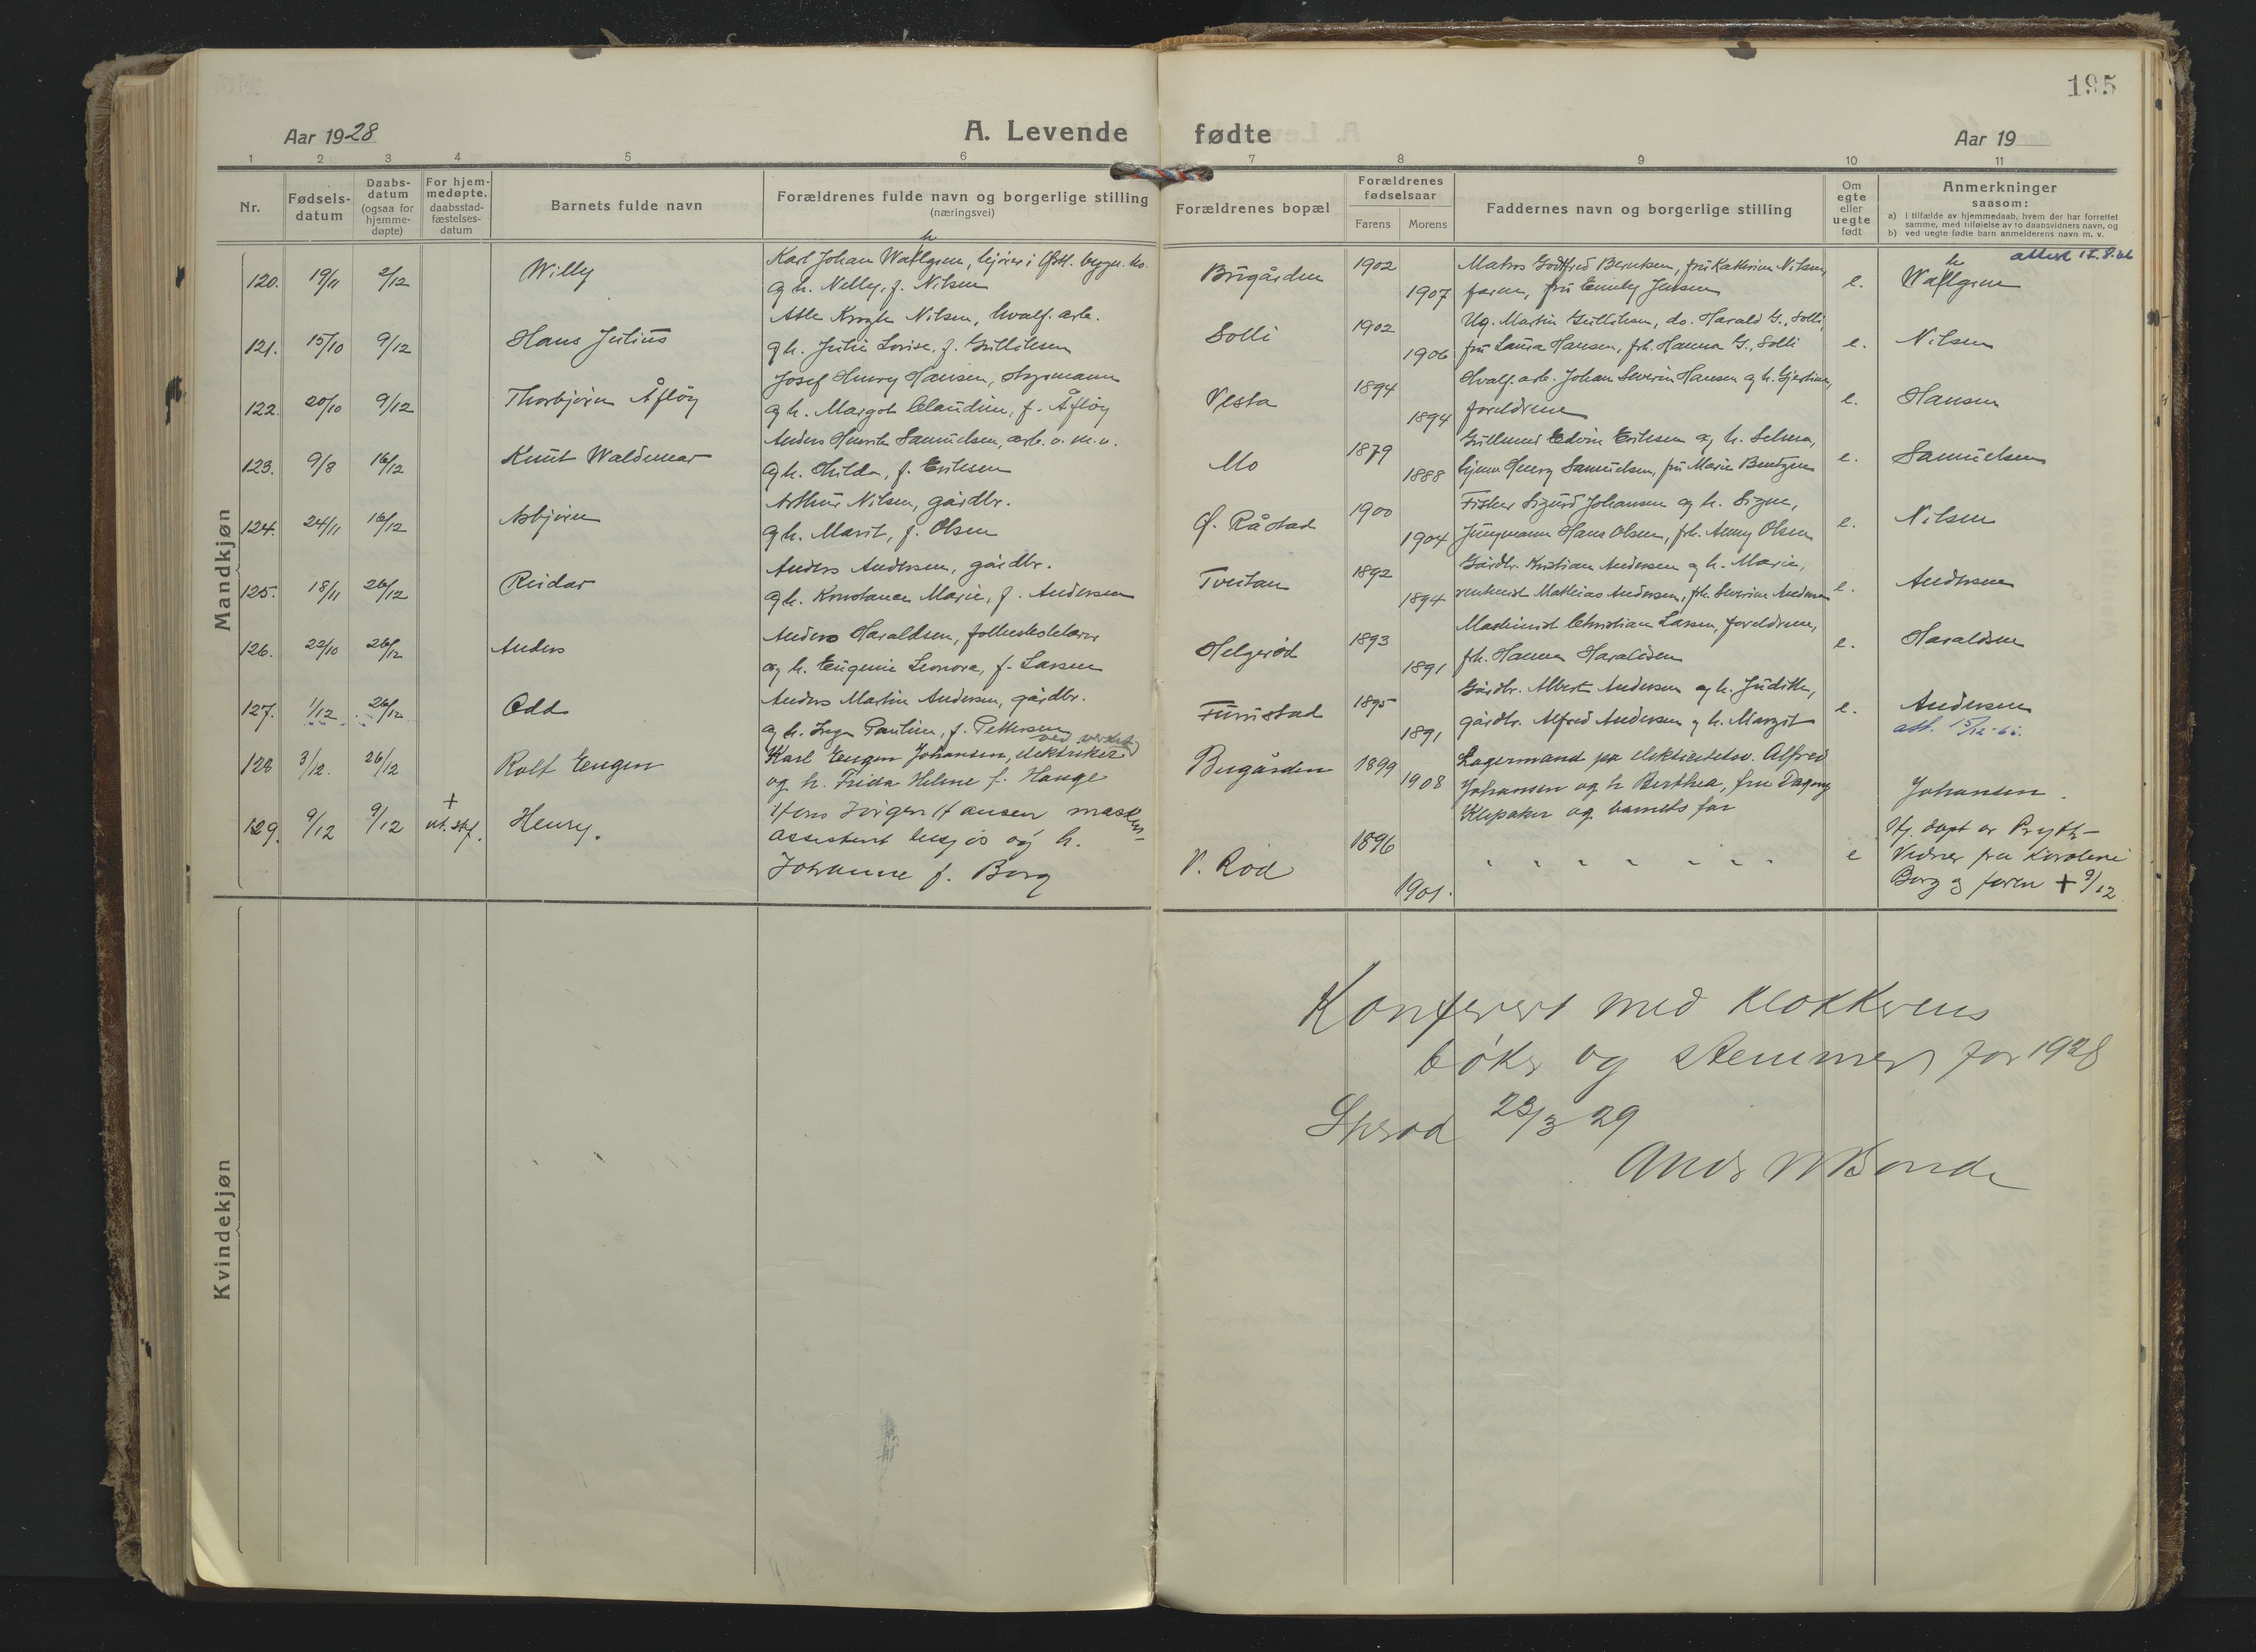 195
Aar 1928
A. Levende fødte
Aar 19
1 2 3 4 5 6 7 8 9 10 11
Nr.
Fødsels-
datum
Daabs-
datum
(ogsaa for
hjemme-
døpte)
For hjem-
medøpte.
daabsstad-
fæstelses-
datum
Barnets fulde navn
Forældrenes fulde navn og borgerlige stilling
(næringsvei)
Forældrenes bopæl
Forældrenes
fødselsaar
Farens Morens
Faddernes navn og borgerlige stilling
Om
egte
eller
uegte
født
Anmerkninger
saasom:
a) I tilfælde av hjemmedaab, hvem der har forrettet
samme, med tilføielse av to daabsvidners navn, og
b) ved uegte fødte barn anmelderens navn m. v.
Mandkjøn
120. 19/11 2/12 Willy Karl Johan Wahlgren, kjører i Østl. bryggeri
og h. Nelly, f. Nilsen
Bugården 1902 1907
Matros Godtfred Berntsen, fru Kathrine Nilsen,
faren, fru Emily Jensen
e. Wahlgren
121. 15/10 9/12 Hans Julius Atle Krogh Nilsen, hvalf. arb.
og h. Julie Lovise, f. Gulliksen
Solli 1902 1906
Ug. Martin Gulliksen, do. Harald G., Solli,
fru Laura Hansen, frk. Hanna G., Solli
e. Nilsen
122. 20/10 9/12 Thorbjørn Åfløy Josef Henry Hansen, skipsmann
og h. Margot Claudine, f. Åfløy
Vesta 1894 1894
Hvalf. arb. Johan Severin Hansen og h. Gjertine,
foreldrene
e. Hansen
123. 9/8 16/12 Knut Waldemar Anders Henrik Samuelsen, arb. v. m. v.
og h. Hilda, f. Eriksen
Mo 1879 1888
Gullsmed Edvin Eriksen og h. Selma,
Henry Samuelsen, fru Marie Bentzen
e. Samuelsen
124. 24/11 16/12 Asbjørn Arthur Nilsen, gårdbr.
og h. Marit, f. Olsen
Ø. Råstad 1900 1904
Fisker Sigurd Johansen og h. Signe,
Jungmann Hans Olsen, frk. Anny Olsen
e. Nilsen
125. 18/11 26/12 Reidar Anders Andersen, gårdbr.
og h. Konstance Marie, f. Andersen
Tveitan 1892 1894
Gårdbr. Kristian Andersen og h. Marie,
Mathias Andersen, frk. Severine Andersen
e. Andersen
126. 22/10 26/12 Anders Anders Haraldsen, folkeskolelærer
og h. Eugenie Leonora, f. Larsen
Helgerød 1893 1891
Maskinist Christian Larsen, foreldrene,
frk. Hanna Haraldsen
e. Haraldsen
127. 1/12 26/12 Odd Anders Martin Andersen, gårdbr.
og h. Inga Pauline, f. Pettersen
Furustad 1895 1891
Gårdbr. Albert Andersen og h. Judith,
gårdbr. Alfred Andersen og h. Margit
e. Andersen
att. 15/12-65.
128 3/12. 26/12 Rolf Eugen Karl Eugen Johansen, elektriker
og h. Frida Helene f. Hauge
Bugården 1899 1908
Lagermand på elektricitetsv. Alfred
Johansen og h Berthea, fru Dagny
Klepaker og barnets far
Johansen.
129. 9/12 9/12 + ut. stf. Henry. Hans Jørgen Hansen maskin-
assistent og h.
Johanne f. Borg
V. Rød 1896 1901.
" " " " " " "
e Hj. døpt av
Vidner fru Karoline
Borg og faren + 9/12
Kvindekjøn
Konferert med klokkerens
bøker og stemmer for 1928
23/3 29